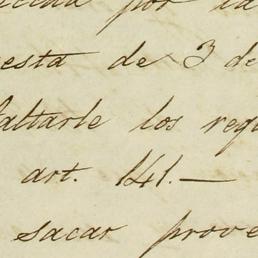 por la
esta de 3 de
faltarle los requ
art. 141.—
sacar prove